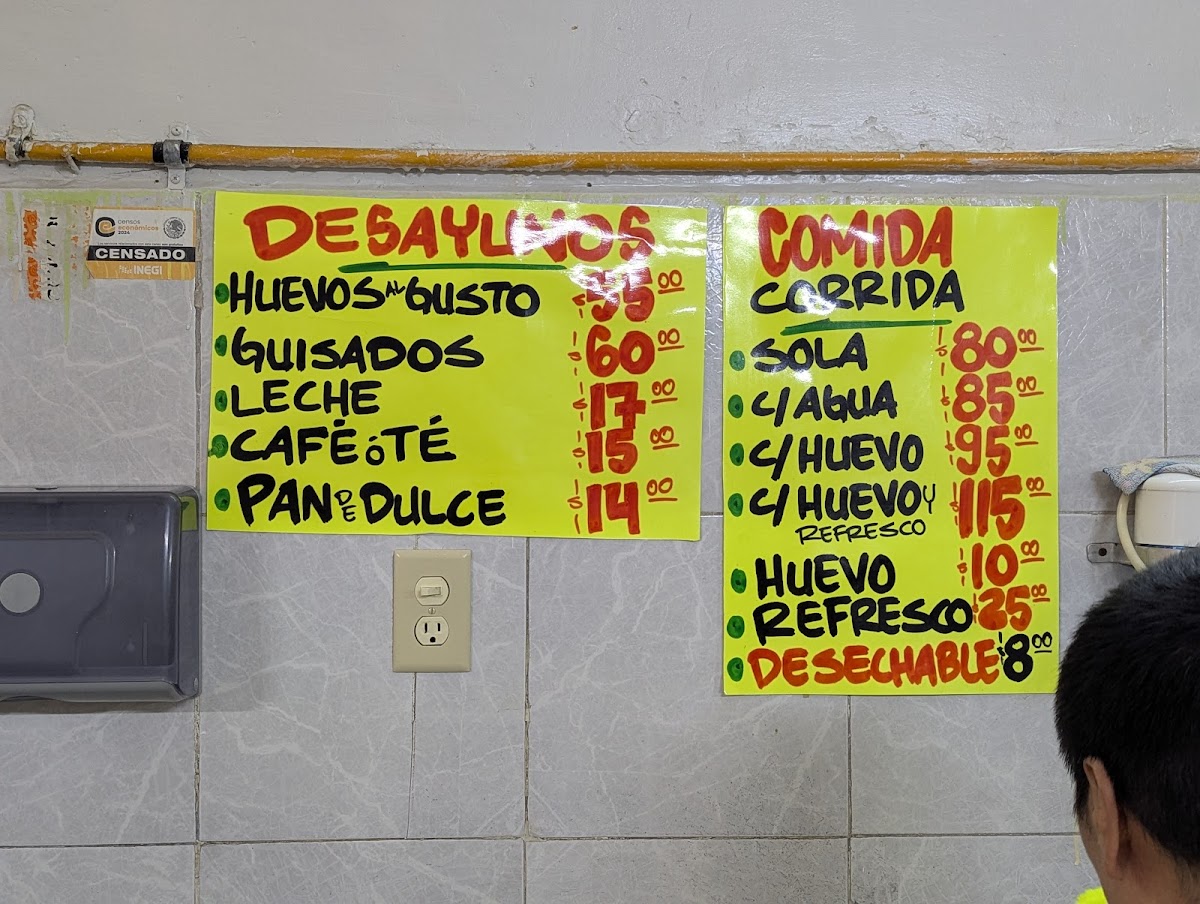 censos
económicos
2024
CENSADO
INEGI
DESAYUNOS
HUEVOS AL GUSTO $55.00
GUISADOS $60.00
LECHE $17.00
CAFÉ ó TÉ $15.00
PAN DE DULCE $14.00
COMIDA
CORRIDA
SOLA $80.00
C/AGUA $85.00
C/HUEVO $95.00
C/HUEVO Y $115.00
REFRESCO
HUEVO $10.00
REFRESCO $25.00
DESECHABLE $8.00